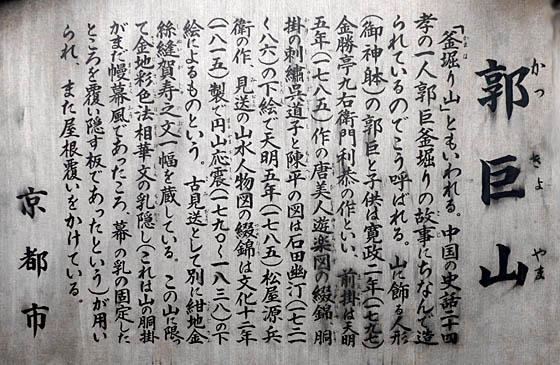 郭巨山
かっきょやま
「釜堀り山」ともいわれる。中国の史話二十四
孝の一人郭巨釜堀りの故事にちなんで造
られているのでこう呼ばれる。山に飾る人形
(御神躰)の郭巨と子供は寛政二年(一七九七)
金勝亭九右衛門利恭の作といい、前掛は天明
五年(一七八五)作の唐美人遊楽図の綴錦 胴
掛の刺繍呉道子と陳平の図は石田幽汀(一七二一
〜八六)の下絵で天明五年(一七八五)松屋源兵
衛の作、見送の山水人物図の綴錦は文化十二年
(一八一五)製で円山応震(一七九〇〜一八三八)の下
絵によるものという。古見送として別に紺地金
絲縫賀寿之文一幅を蔵している。この山に限っ
て金地彩色法相華文の乳隠し(これは山の胴掛
がまだ幔幕風であったころ、幕の乳の固定した
ところを覆い隠す板であったという)が用い
られ、また屋根覆いをかけている。
京都市